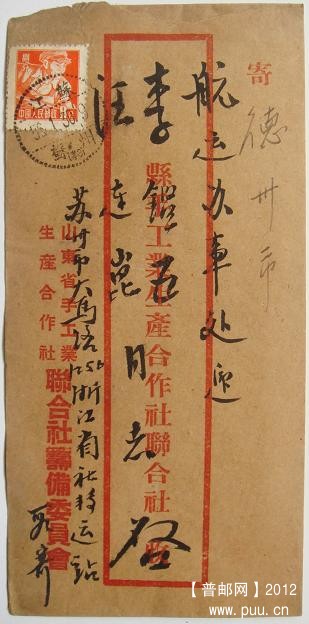 寄
德州市
航运办事处 迎
縣 工業生產合作社聯合社
李鎧五
汪連崑 同志 啟
山東省手工業
生產合作社
聯合社籌備委員會
苏州市大馬路 浙江省社转运站
寄
中国人民邮政
【普邮网】2012
www.puu.cn